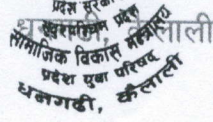 प्रदेश सरकार
सुदूरपश्चिम प्रदेश
सामाजिक विकास मन्त्रालय
प्रदेश युवा परिषद
धनगढी, कैलाली
धनगढी, कैलाली